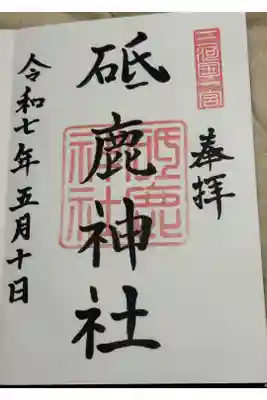 三河國一宮
奉拝
砥鹿神社
砥鹿神社
令和七年五月十日